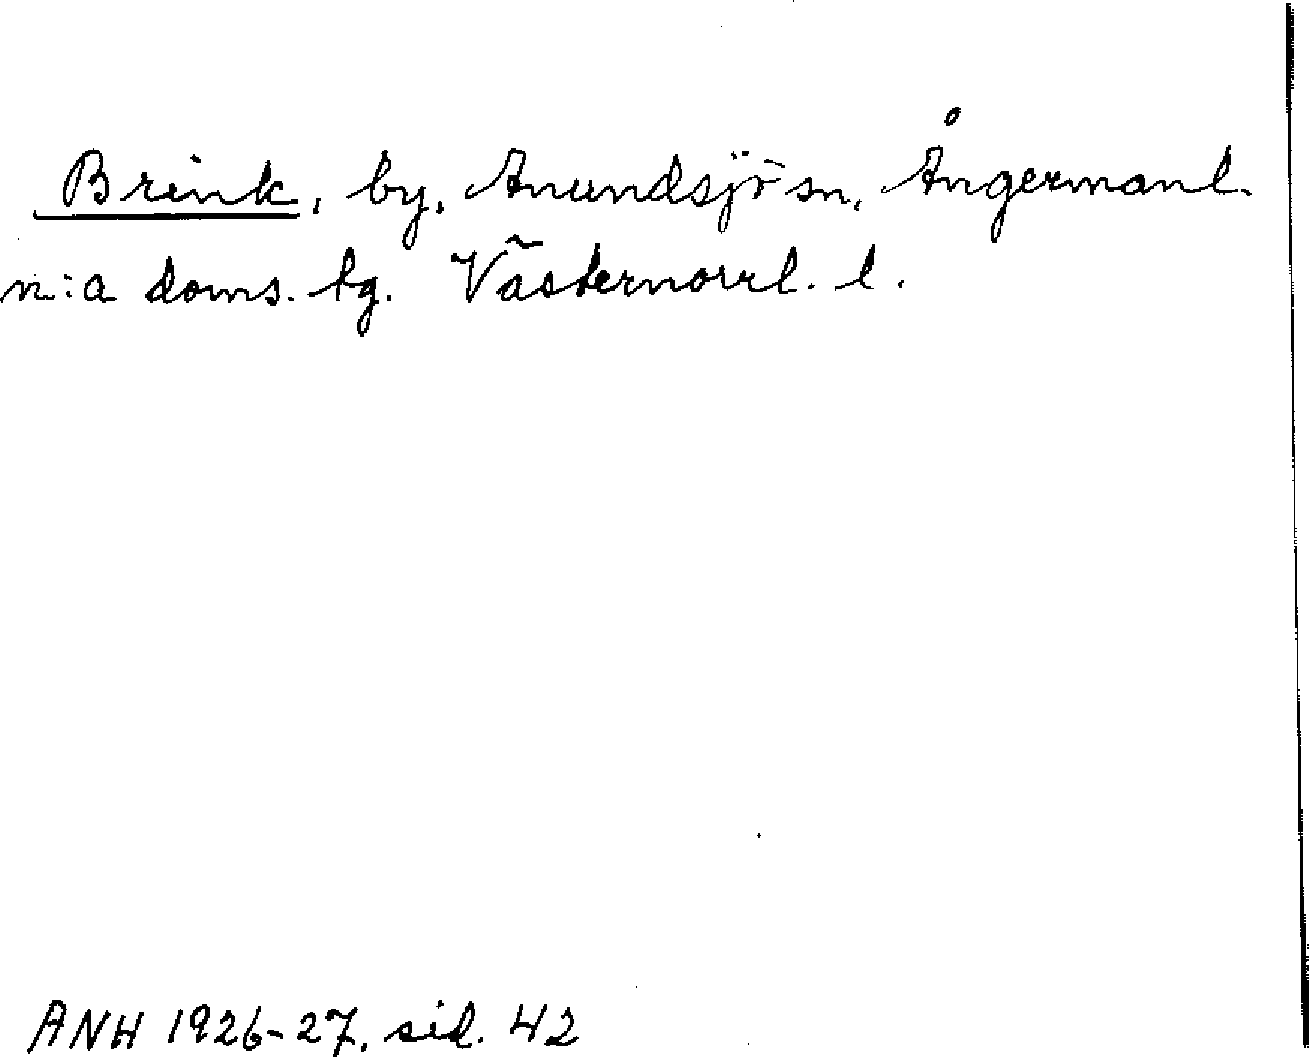 Brink, by, Anundsjö sn, Ångermanl.
n:a doms. tg. Västernorrl. l.
ANH 1926-27, sid. 42